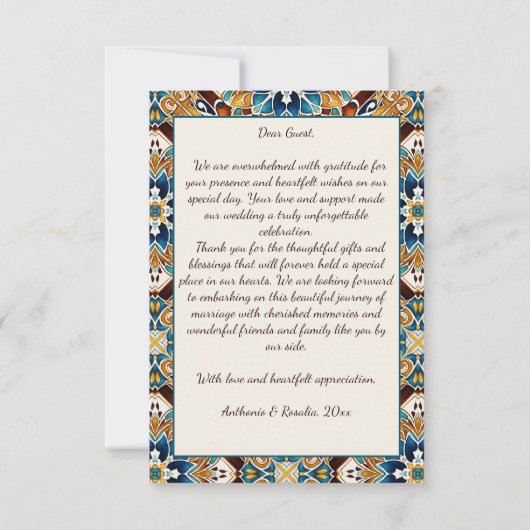 Dear Guest,
We are overwhelmed with gratitude for
your presence and heartfelt wishes on our
special day. Your love and support made
our wedding a truly unforgettable
celebration.
Thank you for the thoughtful gifts and
blessings that will forever hold a special
place in our hearts. We are looking forward
to embarking on this beautiful journey of
marriage with cherished memories and
wonderful friends and family like you by
our side.
With love and heartfelt appreciation,
Anthonio & Rosalia, 20xx